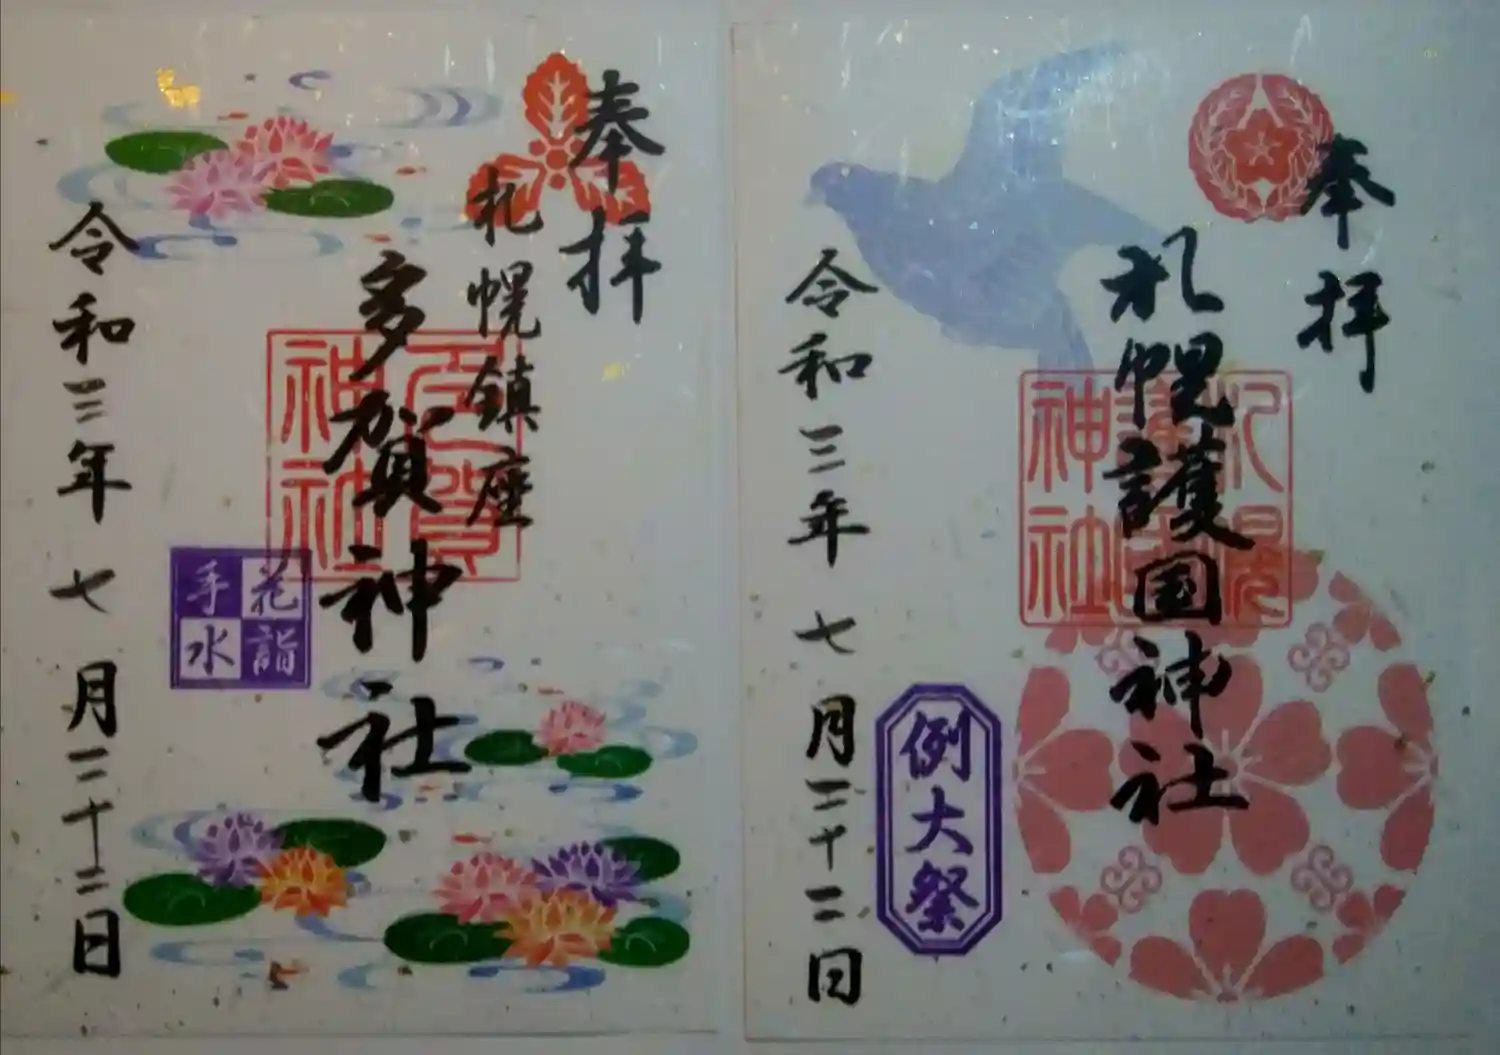 奉拝
札幌護国神社
札幌
護国
神社
例大祭
令和三年七月二十二日
奉拝
札幌鎮座
多賀神社
多賀
神社
花詣
手水
令和三年七月二十二日